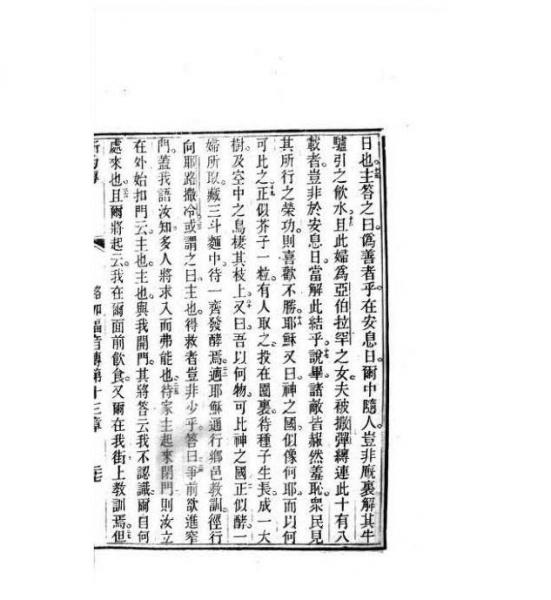 日也主答之曰僞善者乎在安息日爾中隨人豈非厩裏解其牛
驢引之飲水且此婦爲亞伯拉罕之女夫被撒彈縛連此十有八
載者豈非於安息日當解此結乎說畢諸敵皆赧然羞恥衆民見
其所行之榮功則喜歡不勝耶穌又曰神之國似像何耶而以何
可比之正似芥子一粒有人取之投在園裏待種子生長成一大
樹及空中之鳥棲其枝上又曰吾以何物可比神之國正似酵一
婦所以藏三斗麵中待一齊發酵焉適耶穌通行鄉邑教訓徑行
向耶路撒冷或謂之曰主也得救者豈非少乎答曰爭前欲進窄
門蓋我語汝知多人將求入而弗能也待家主起來閉門則汝立
在外始扣門云主也主也與我開門其將答云我不認識爾自何
處來也且爾將起云我在爾面前飲食又爾在我街上教訓焉但
路加福音傳第十三章